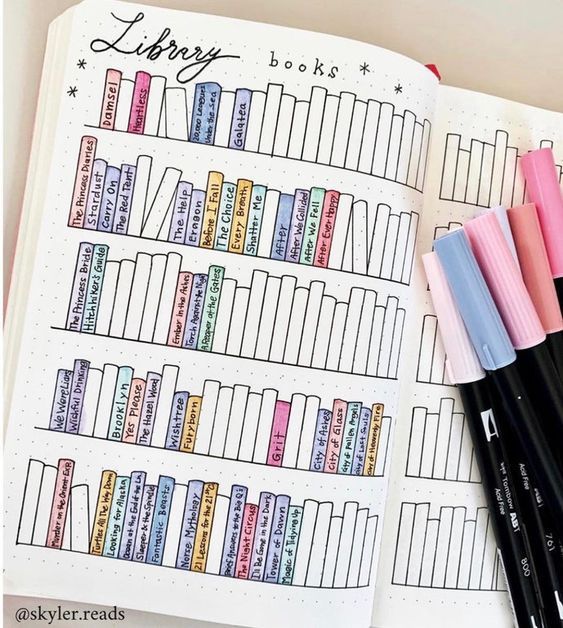 Library books
Damsel
Heartless
20,000 Leagues Under the Sea
Galatea
The Princess Diaries
Stardust
Carry On
The Red Tent
The Help
Eragon
Before I Fall
The Choice
Every Breath
Shatter Me
After
After We Collided
After We Fell
After Ever Happy
The Princess Bride
Hitchhiker's Guide
Ember in the Ashes
Torch Against the Night
A Reaper at the Gates
We Were Liars
Wishful Drinking
Brooklyn
Yes Please
The Hazel Wood
Wishtree
Furyborn
Grit
City of Ashes
City of Glass
City of Fallen Angels
City of Lost Souls
City of Heavenly Fire
Murder on the Orient EXP.
Turtles All the Way Down
Looking for Alaska
Ocean at the End of the Ln
Sleeper & the Spindle
Fantastic Beasts
Norse Mythology
21 Lessons for the 21st C
Brief Answers to the Big Q's
The Night Circus
I'll Be Gone in the Dark
Tower of Dawn
Magic of Tidying Up
Acid Free
Tombow ABT
800
Acid Free
761
@skyler.reads